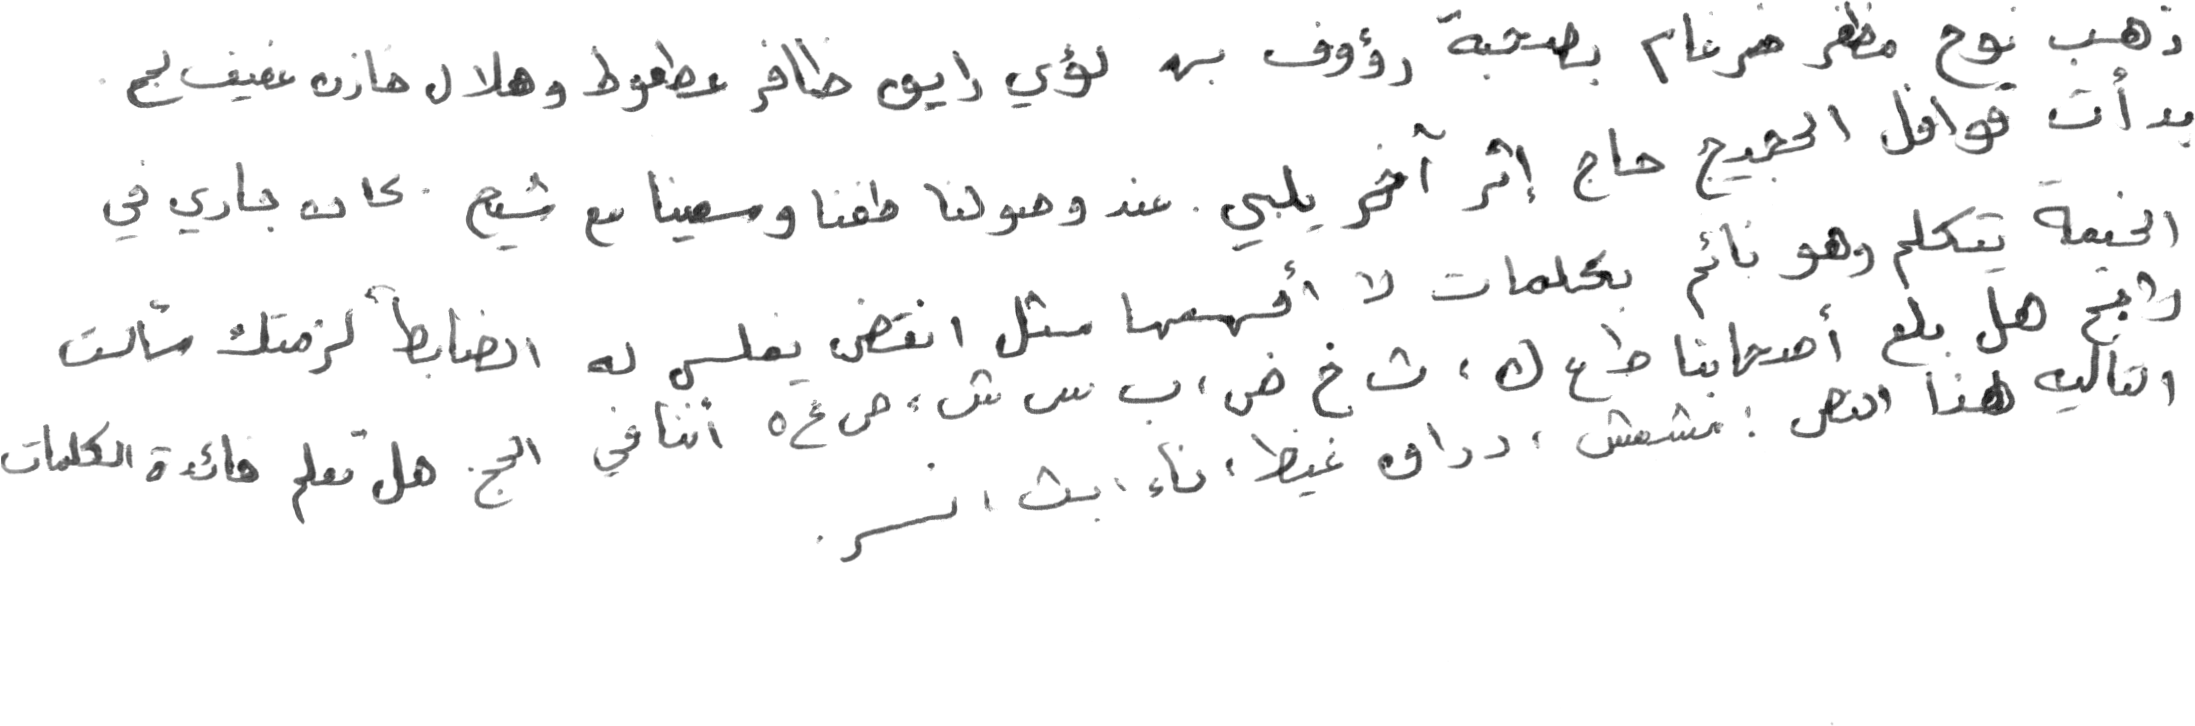 ذهب نوح مظفر ضرغام بصحبة رؤوف بن لؤي رايق ظافر عطعوط وهلال خازن عفيف لجم.
بدأت قوافل الحجيج حاج إثر آخر يلبي. عند وصولنا طفنا وسعينا مع شيخ. كان جاري في
الخيمة يتكلم وهو نائم بكلمات لا أفهمها مثل انقض يفلس له الضابط لزمتك سألت
رابح هل بلغ أصحابنا ط ع ك، ث خ ض، ب س ش، ص غ ه أننا في الحج. هل تعلم فائدة الكلمات
التالية لهذا النص: مشمش، دراق غيظ، ناء، ابث، انسر.